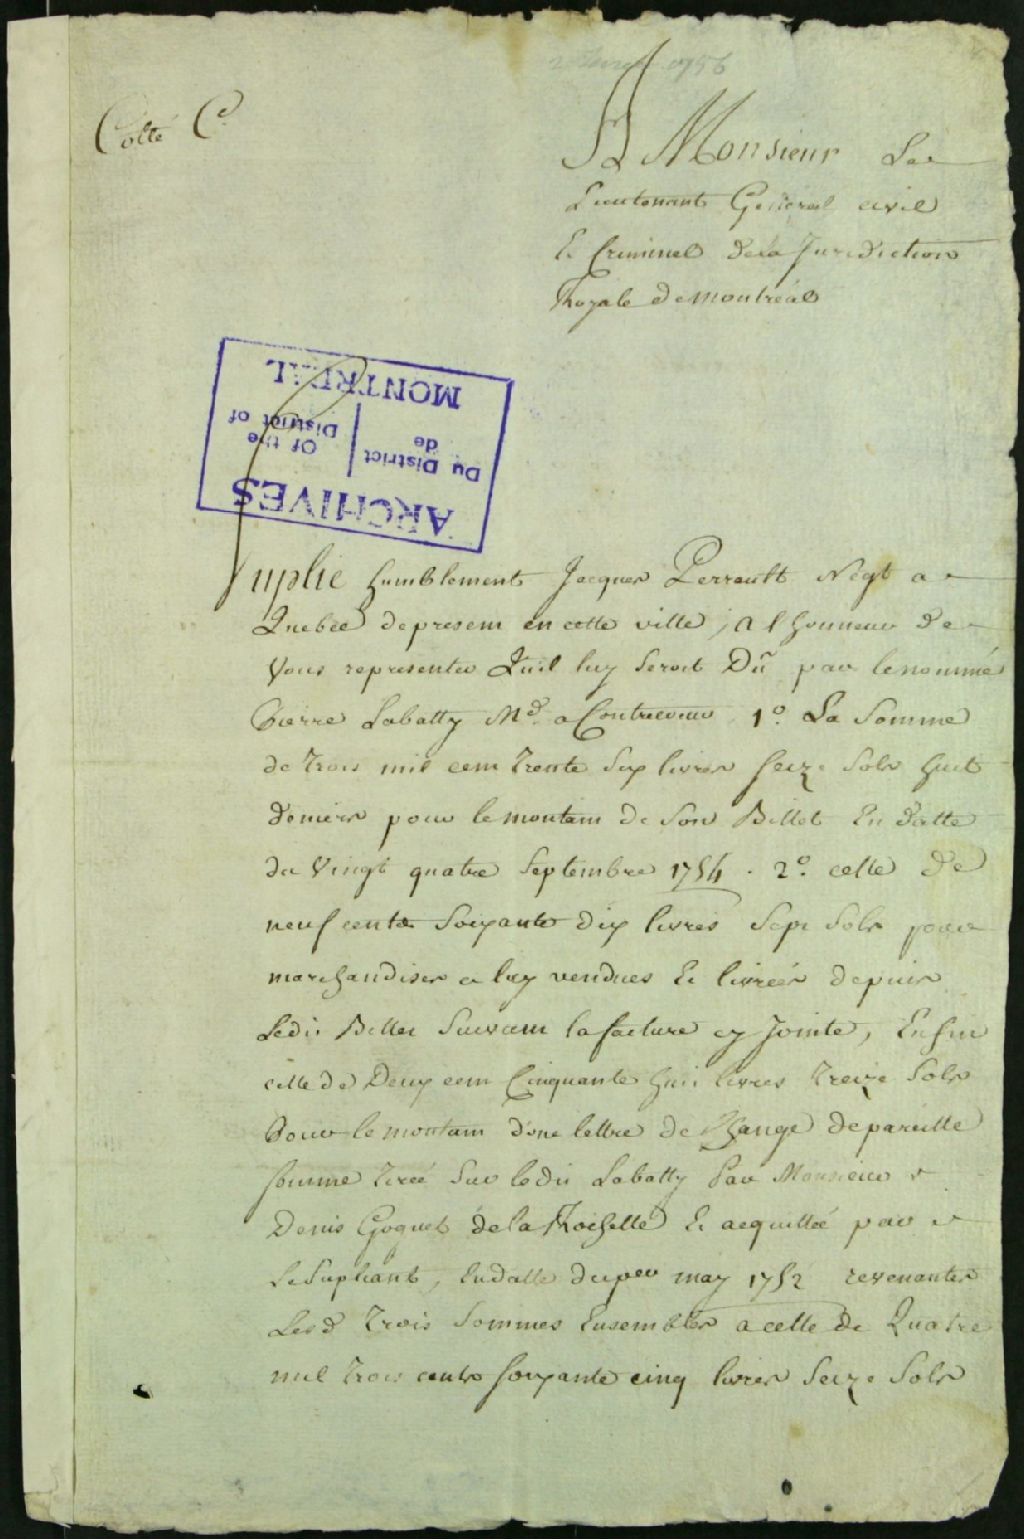 Cotté C.
1756
A Monsieur Le
Lieutenant General civil
Et Criminel de la Jurediction
Royale de Montréal
ARCHIVES
Du District
de
Of the
District of
MONTREAL
Suplie humblement Jacques Perrault Negt a
Quebec depresent en cette ville, a l honneur de
Vous representer Quil luy seroit Dû par le nommé
Pierre Labatty Md. a Contrecoeur 1º. La Somme
de Trois mil cent Trente Six livres Seize Sols huit
deniers pour le montant de Son Billet En datte
du Vingt quatre Septembre 1754. 2º. celle de
neuf cents Soixante dix livres Sept Sols pour
marchandises a luy vendues Et livreés depuis
Ledit Billet Suivant la facture cy Jointe, Enfin
celle de Deux cent Cinquante huit livres Treize Sols
Pour le montant d'une lettre de Change de pareille
somme Tireé Sur ledit Labatty Par Monsieur
Denis Goguet de la Rochelle Et acquittée par
Le Supliant, En datte du per may 1752 revenantes
Lesd Trois Sommes Ensembles a celle de Quatre
mil Trois cents soixante cinq livres Seize Sols